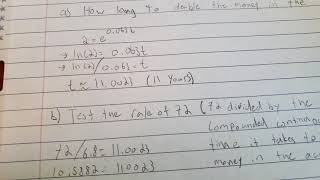 a) How long to double the money in the
2 = e^0.063t
→ ln(2) = 0.063t
→ ln(2)/0.063 = t
t ≈ 11.0023 (11 years)
b) Test the rule of 72 (72 divided by the
compounded continuou
72/6.8 = 11.0023
time it takes to
10.5882 = 11.0023
money in the ac